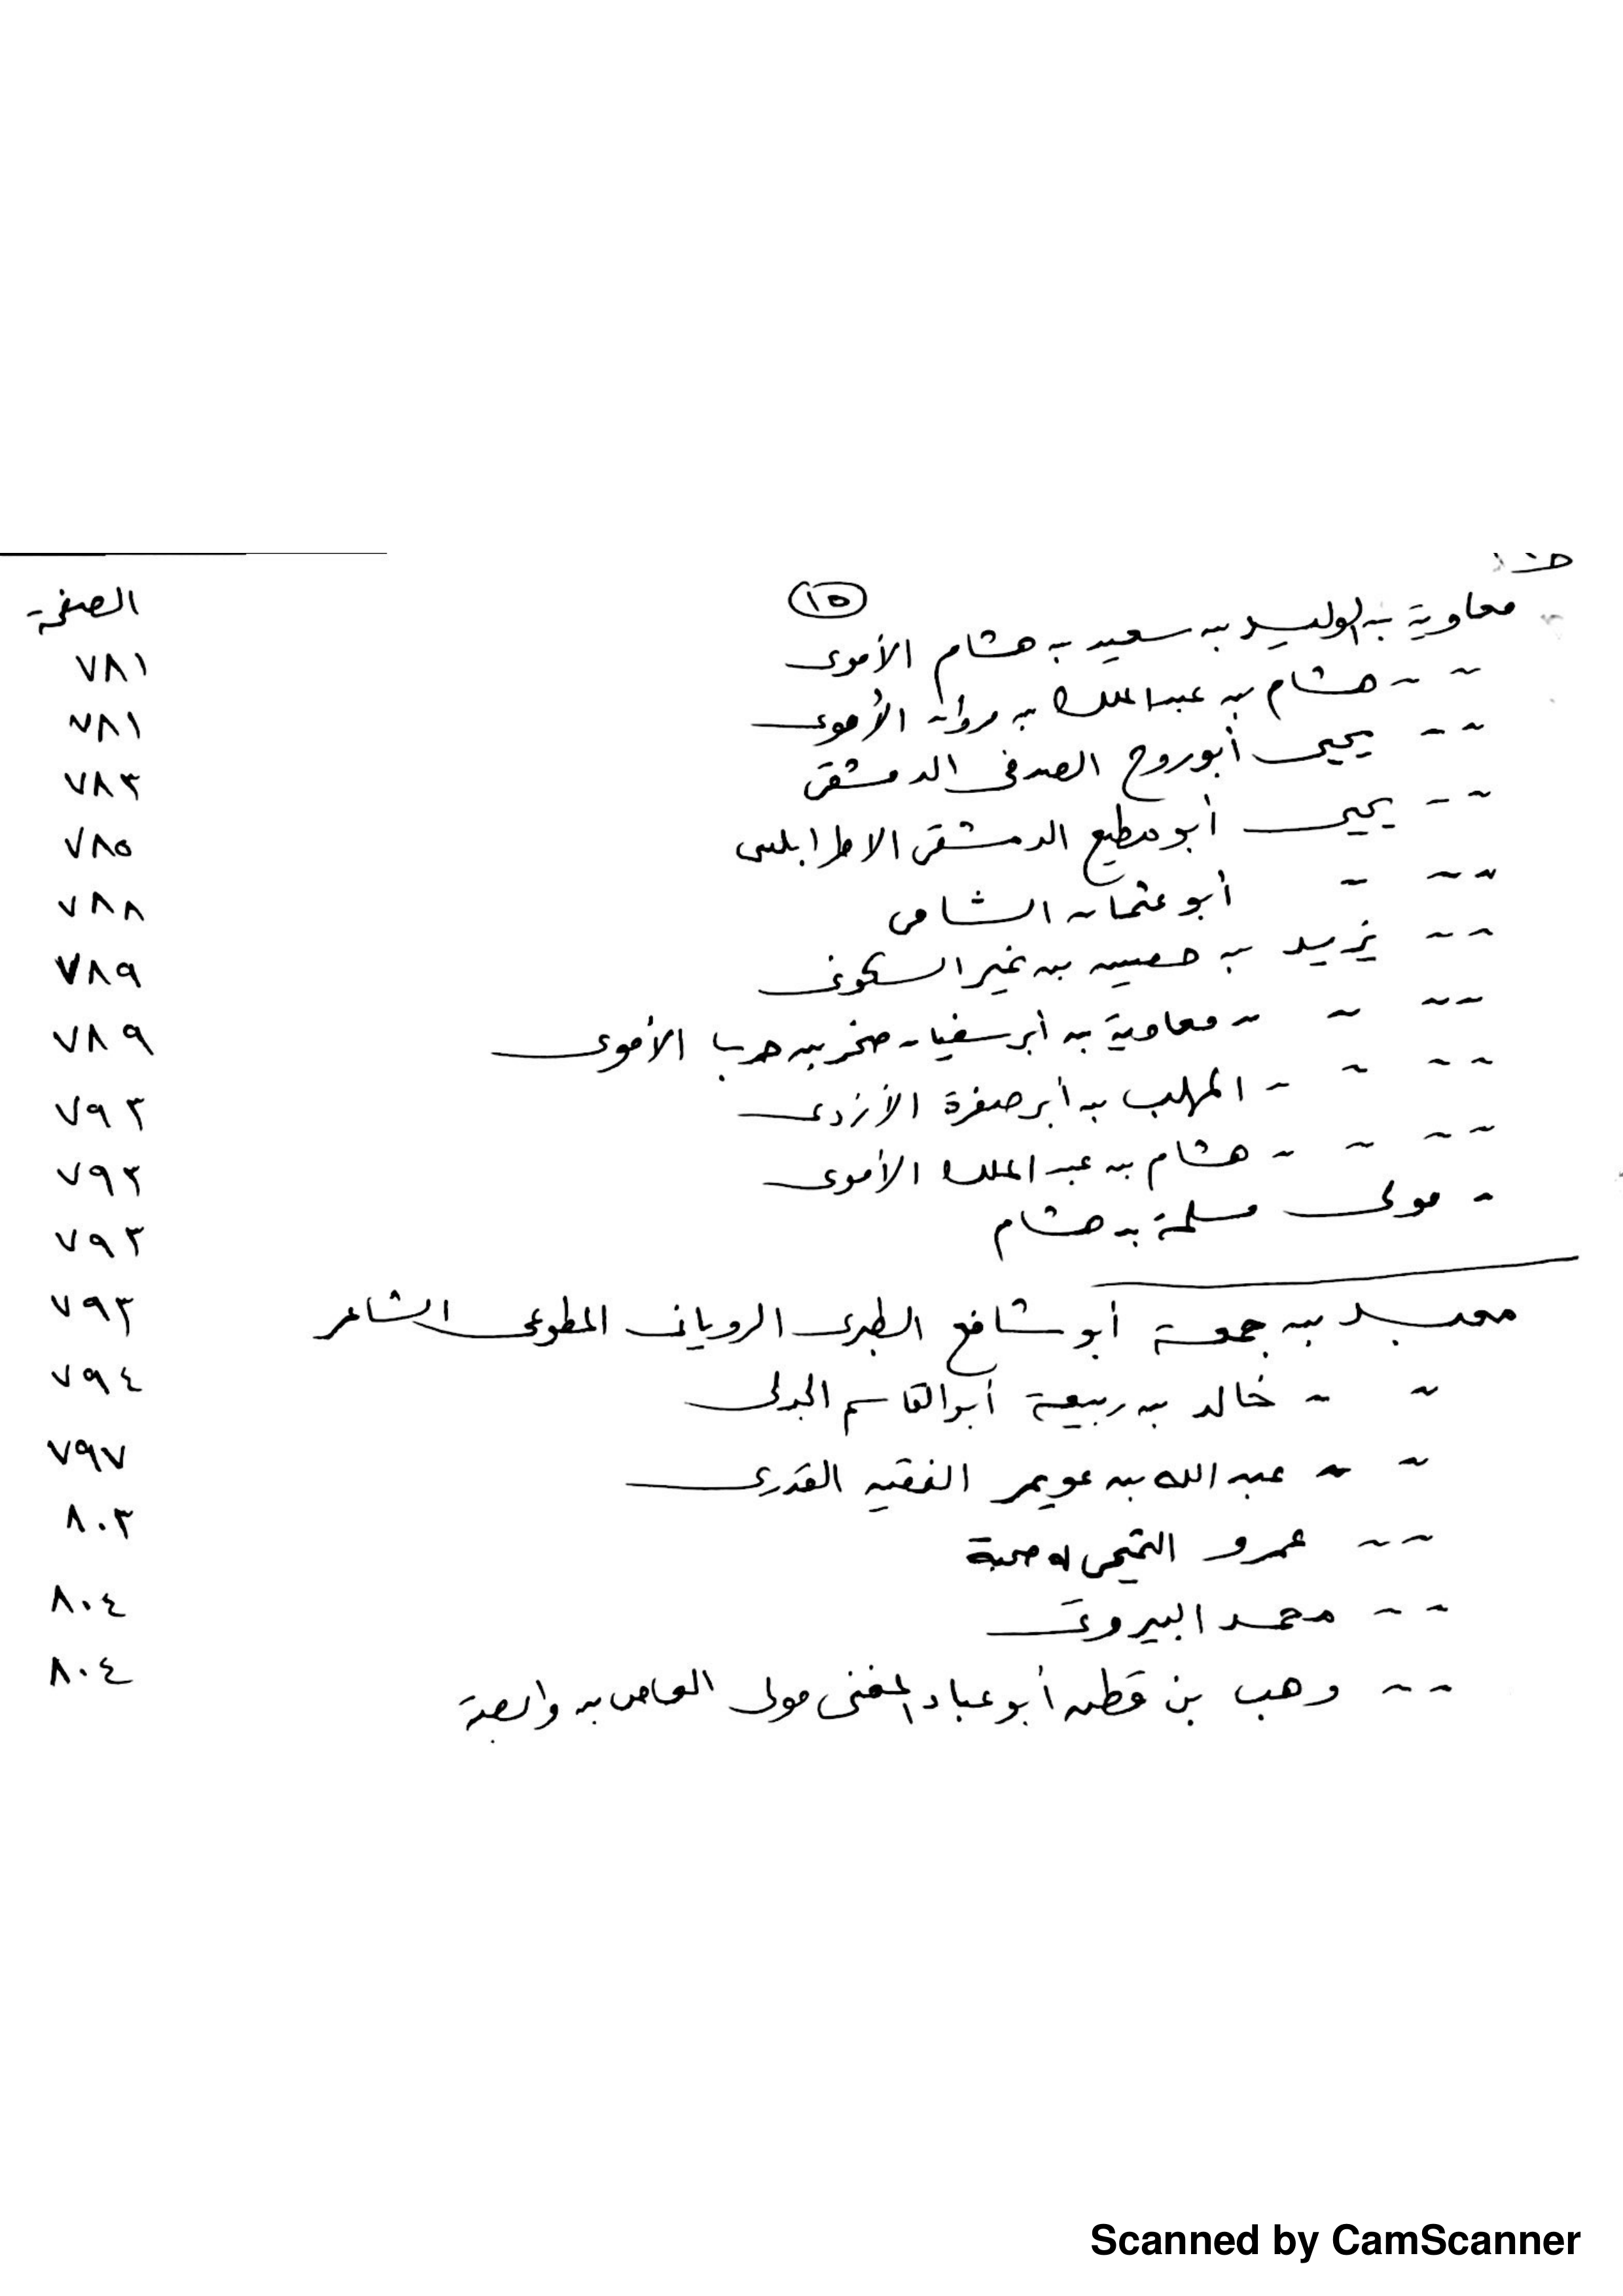 ١٥
الصفحة
معاوية به الوليد به سعيد به هشام الأموى ٧٨١
~ ~ هشام به عبد الملك به مروان الأموى ٧٨١
~ ~ يحيى أبو روح الصدفى الدمشقى ٧٨٣
~ ~ يحيى أبو مطيع الدمشقى الاطرابلسى ٧٨٥
~ ~ ~ أبو عثمان الشامى ٧٨٨
~ ~ يزيد به حصين به نمير السكونى ٧٨٩
~ ~ ~ ~ معاوية به أبى سفيان صخر به حرب الأموى ٧٨٩
~ ~ ~ ~ المهلب به أبى صفرة الأزدى ٧٩٣
~ ~ ~ ~ هشام به عبد الملك الأموى ٧٩٣
~ مولى مسلمة به هشام ٧٩٣
معبد به جمعة أبو شافع الطبرى الرويانى المطوعى الشاعر ٧٩٣
~ ~ خالد به ربيعة أبو القاسم الجدلى ٧٩٤
~ ~ عبد الله به عويمر الفقيه القدرى ٧٩٧
~ ~ عمرو التميمى له صحبة ٨٠٣
~ ~ محمد البيروتى ٨٠٤
~ ~ وهب بن قطن أبو عباد المغنى مولى العاص به وابصة ٨٠٤
Scanned by CamScanner